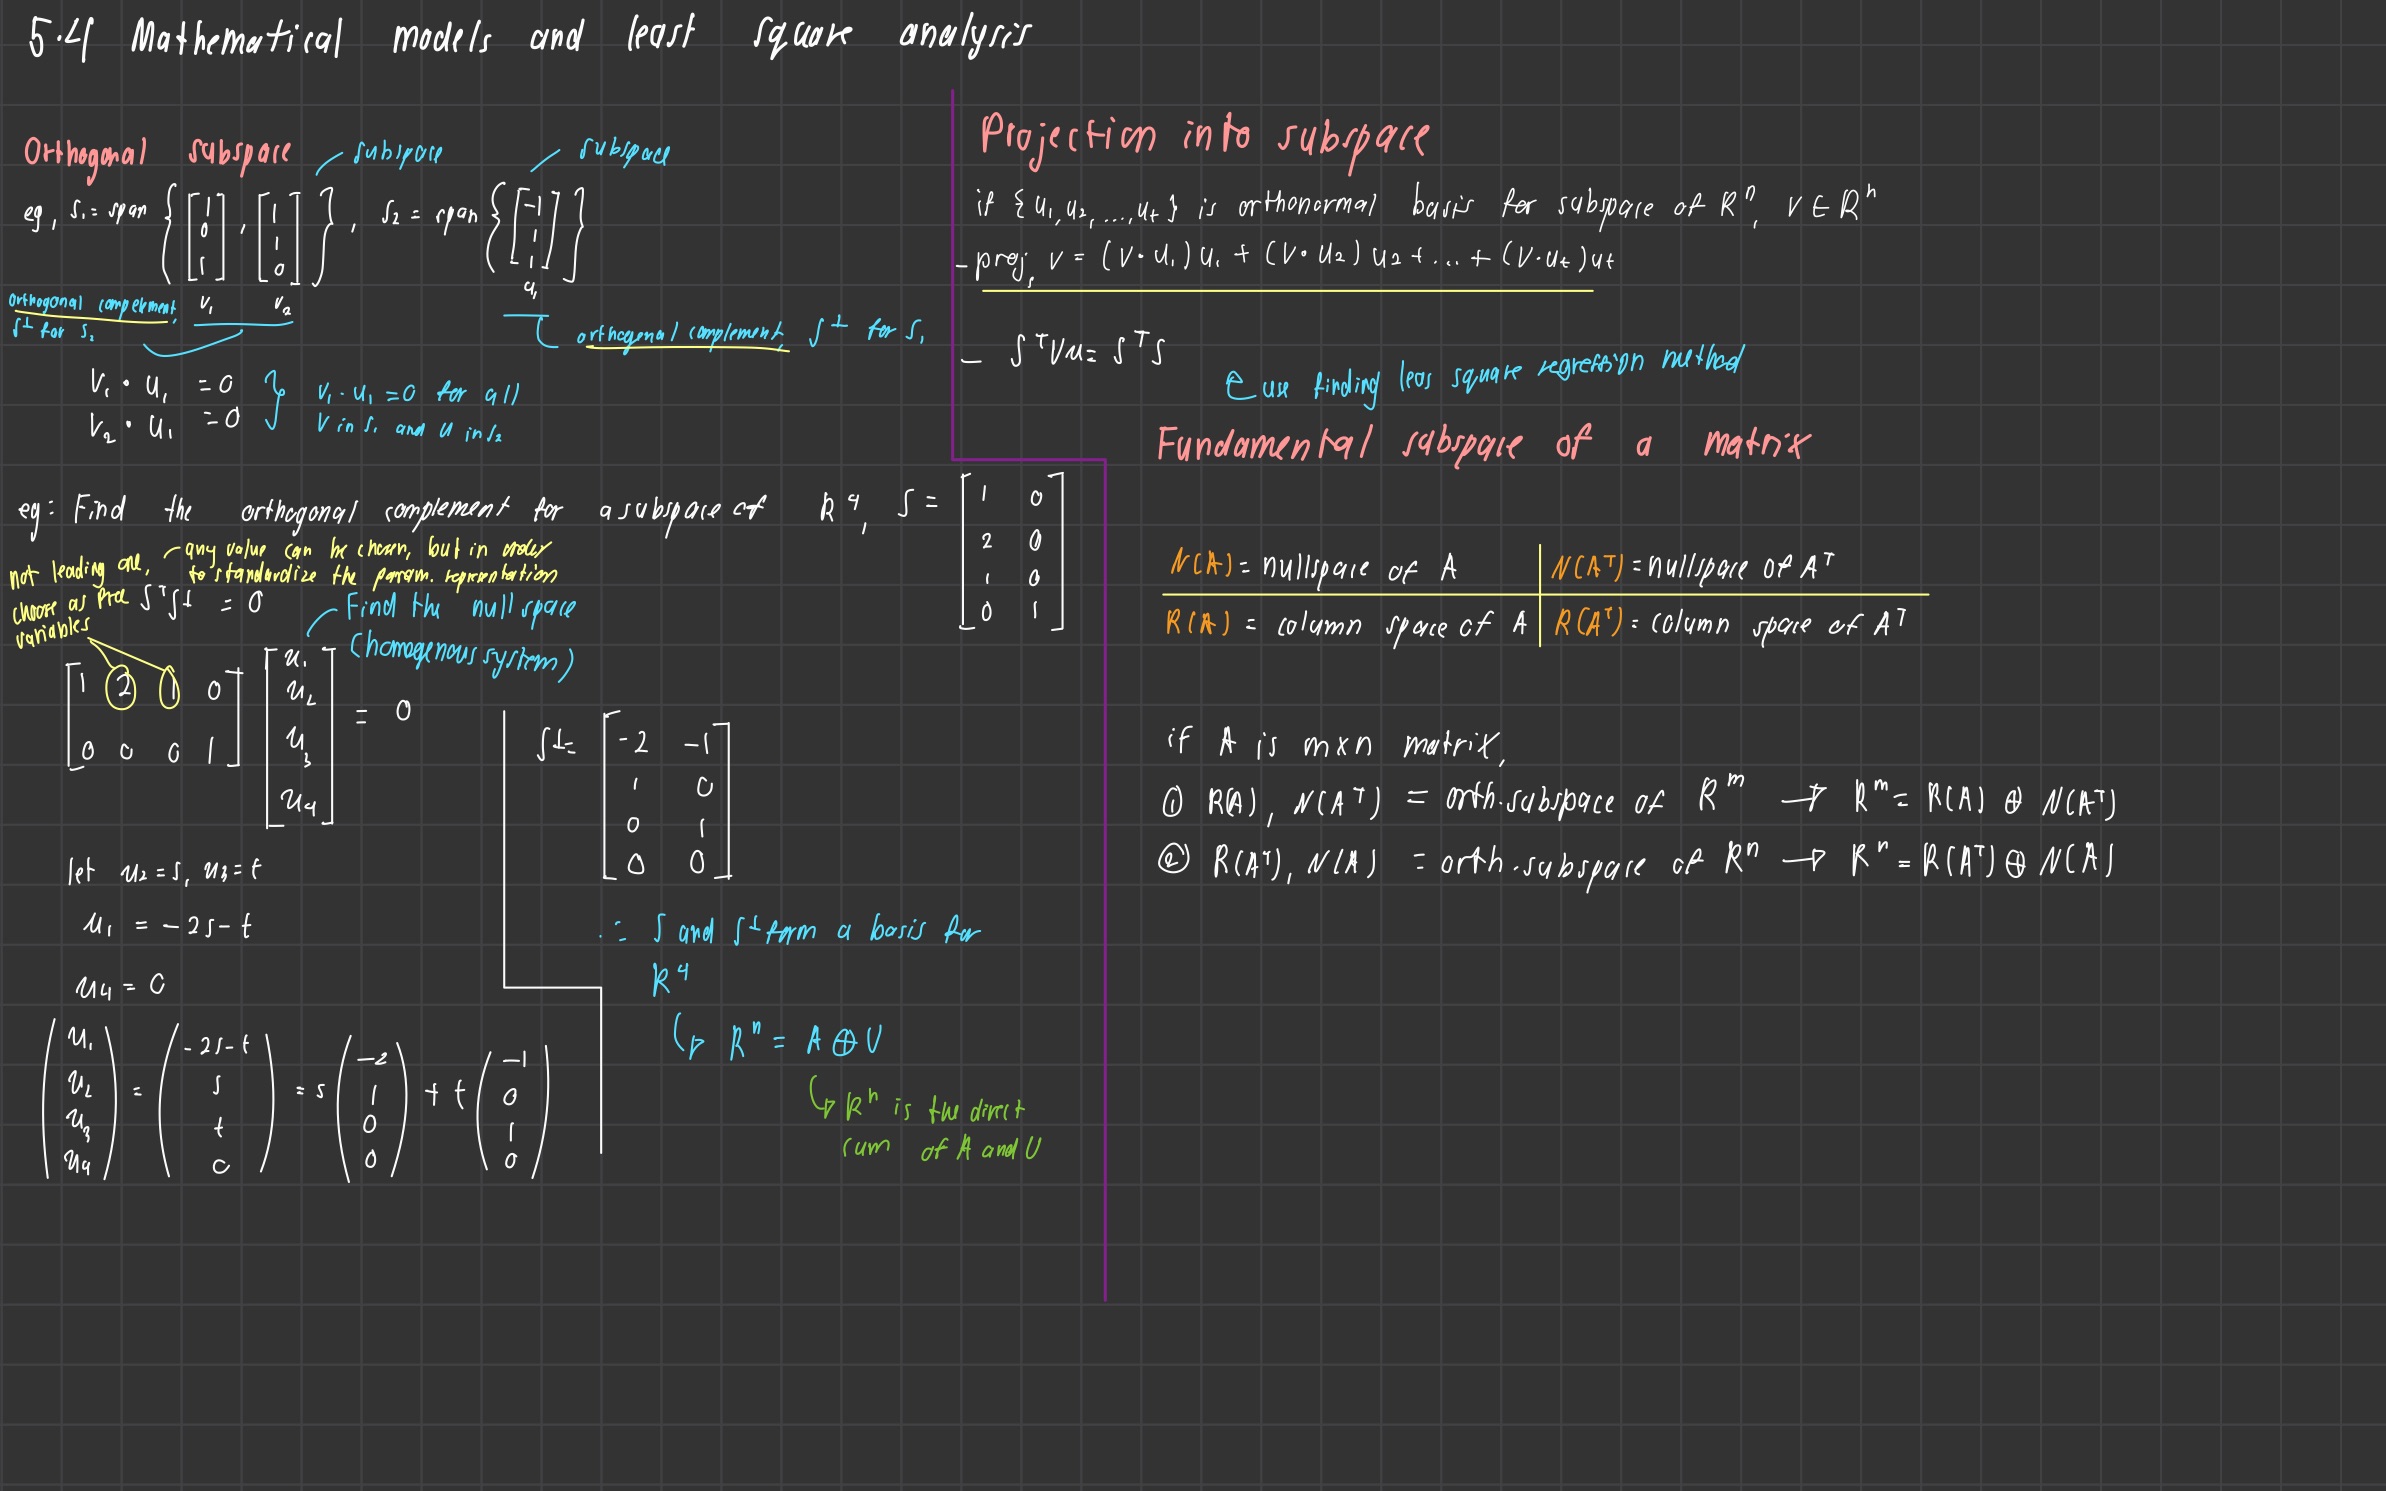 5.4 Mathematical models and least square analysis
Orthogonal subspace
subspace
subspace
eg, S₁ = span {[1 0 1], [1 1 0]}, S₂ = span {[-1 1 1]}
v₁ v₂
u₁
orthogonal complement,
S⊥ for S₂
orthogonal complement, S⊥ for S₁
V₁ · u₁ = 0
V₂ · u₁ = 0
v₁ · u₁ = 0 for all
V in S₁ and u in S₂
eg: Find the orthogonal complement for a subspace of R⁴, S = [1 0; 2 0; 1 0; 0 1]
not leading one,
choose as free
variables
any value can be chosen, but in order
to standardize the param. representation
SᵀS⊥ = 0
Find the null space
(homogenous system)
[1 2 1 0; 0 0 0 1] [u₁; u₂; u₃; u₄] = 0
let u₂ = s, u₃ = t
u₁ = -2s - t
u₄ = 0
(u₁; u₂; u₃; u₄) = (-2s-t; s; t; 0) = s(-2; 1; 0; 0) + t(-1; 0; 1; 0)
S⊥ = [-2 -1; 1 0; 0 1; 0 0]
∴ S and S⊥ form a basis for
R⁴
↳ Rⁿ = A ⊕ U
↳ Rⁿ is the direct
sum of A and U
Projection into subspace
if {u₁, u₂, ..., uₜ} is orthonormal basis for subspace of Rⁿ, v ∈ Rⁿ
- projₛ v = (v · u₁) u₁ + (v · u₂) u₂ + ... + (v · uₜ) uₜ
- SᵀVu = SᵀS
use finding leas square regression method
Fundamental subspace of a matrix
N(A) = nullspace of A | N(Aᵀ) = nullspace of Aᵀ
R(A) = column space of A | R(Aᵀ) = column space of Aᵀ
if A is mxn matrix,
① R(A), N(Aᵀ) = orth. subspace of Rᵐ → Rᵐ = R(A) ⊕ N(Aᵀ)
② R(Aᵀ), N(A) = orth. subspace of Rⁿ → Rⁿ = R(Aᵀ) ⊕ N(A)